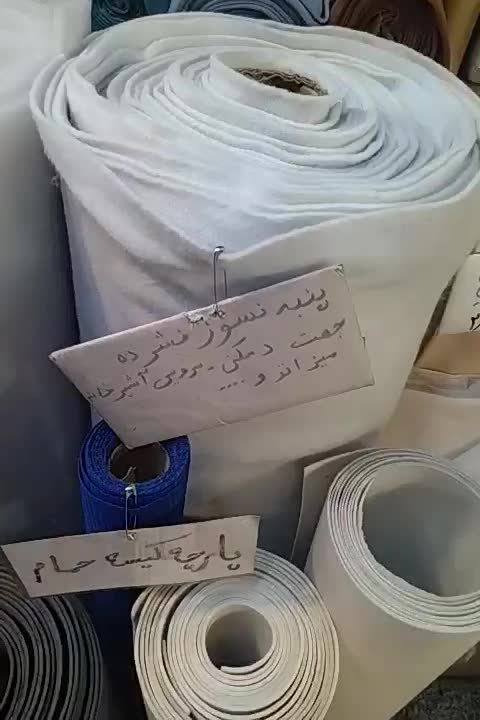 پنبه نسوز فشرده
جهت دمکنی - سرویس آشپزخانه
میز اتو و ....
پارچه کیسه حمام